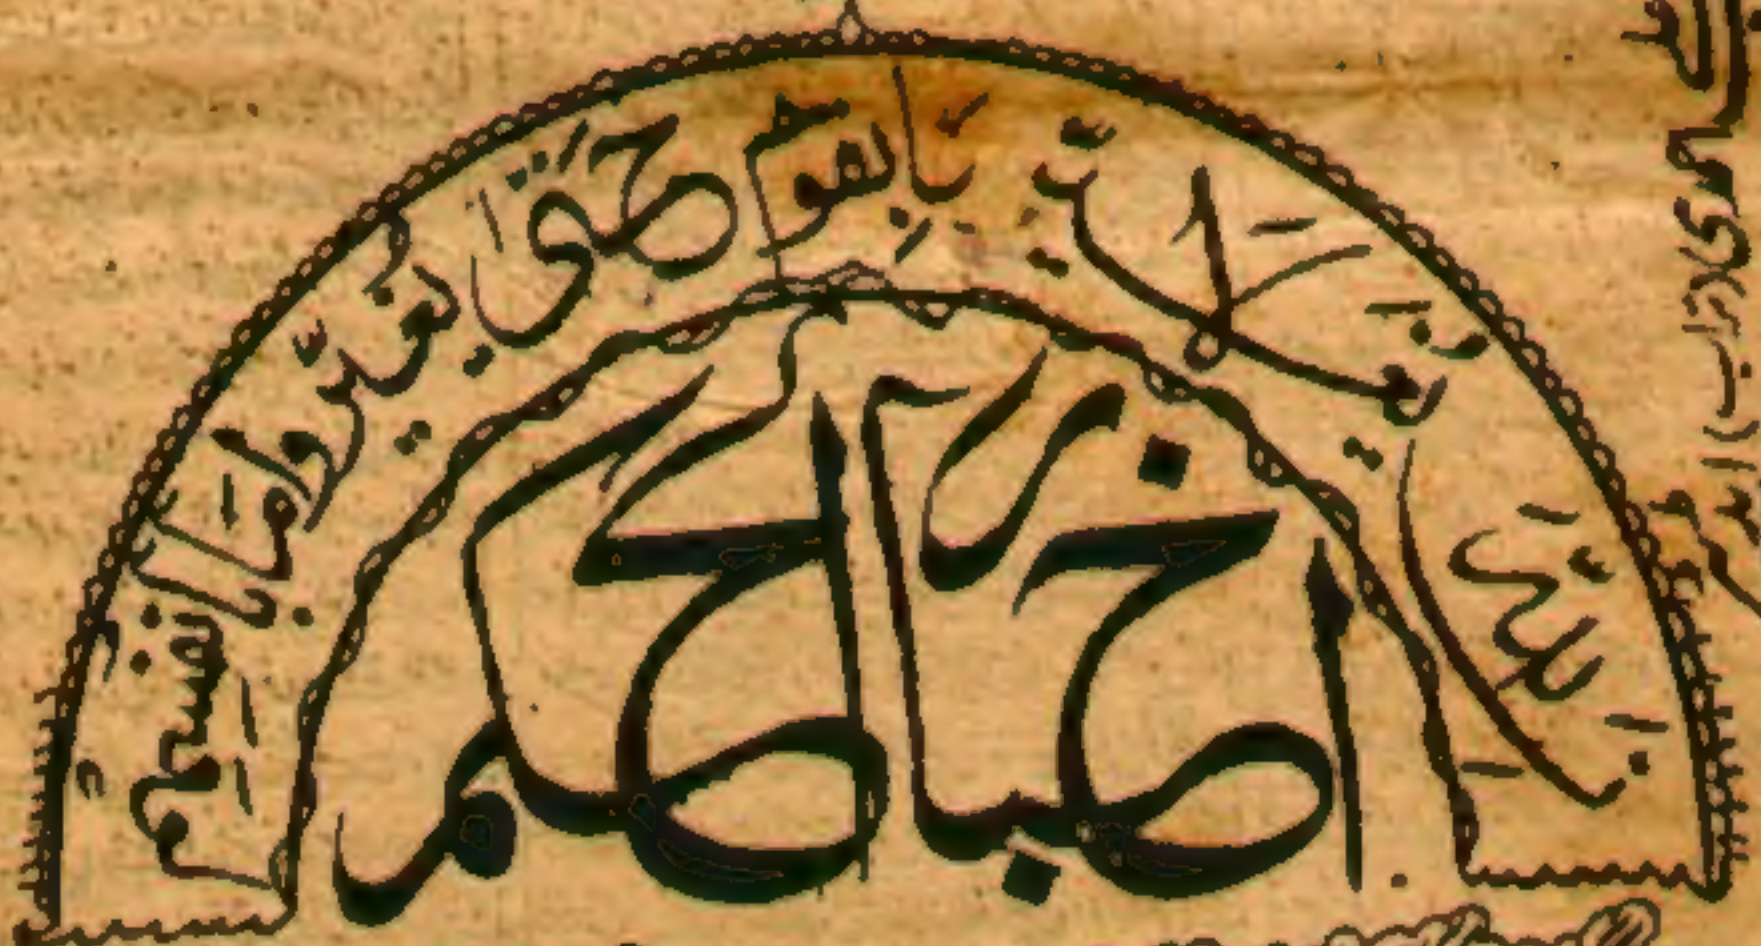 ان الله لا يغير ما بقوم حتى يغيروا ما بانفسهم
اخبار الحكم